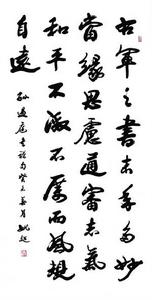 右軍之書末年多妙
當緣思慮通審志氣
和平不激不厲而風規
自遠
孫過庭書譜句癸未